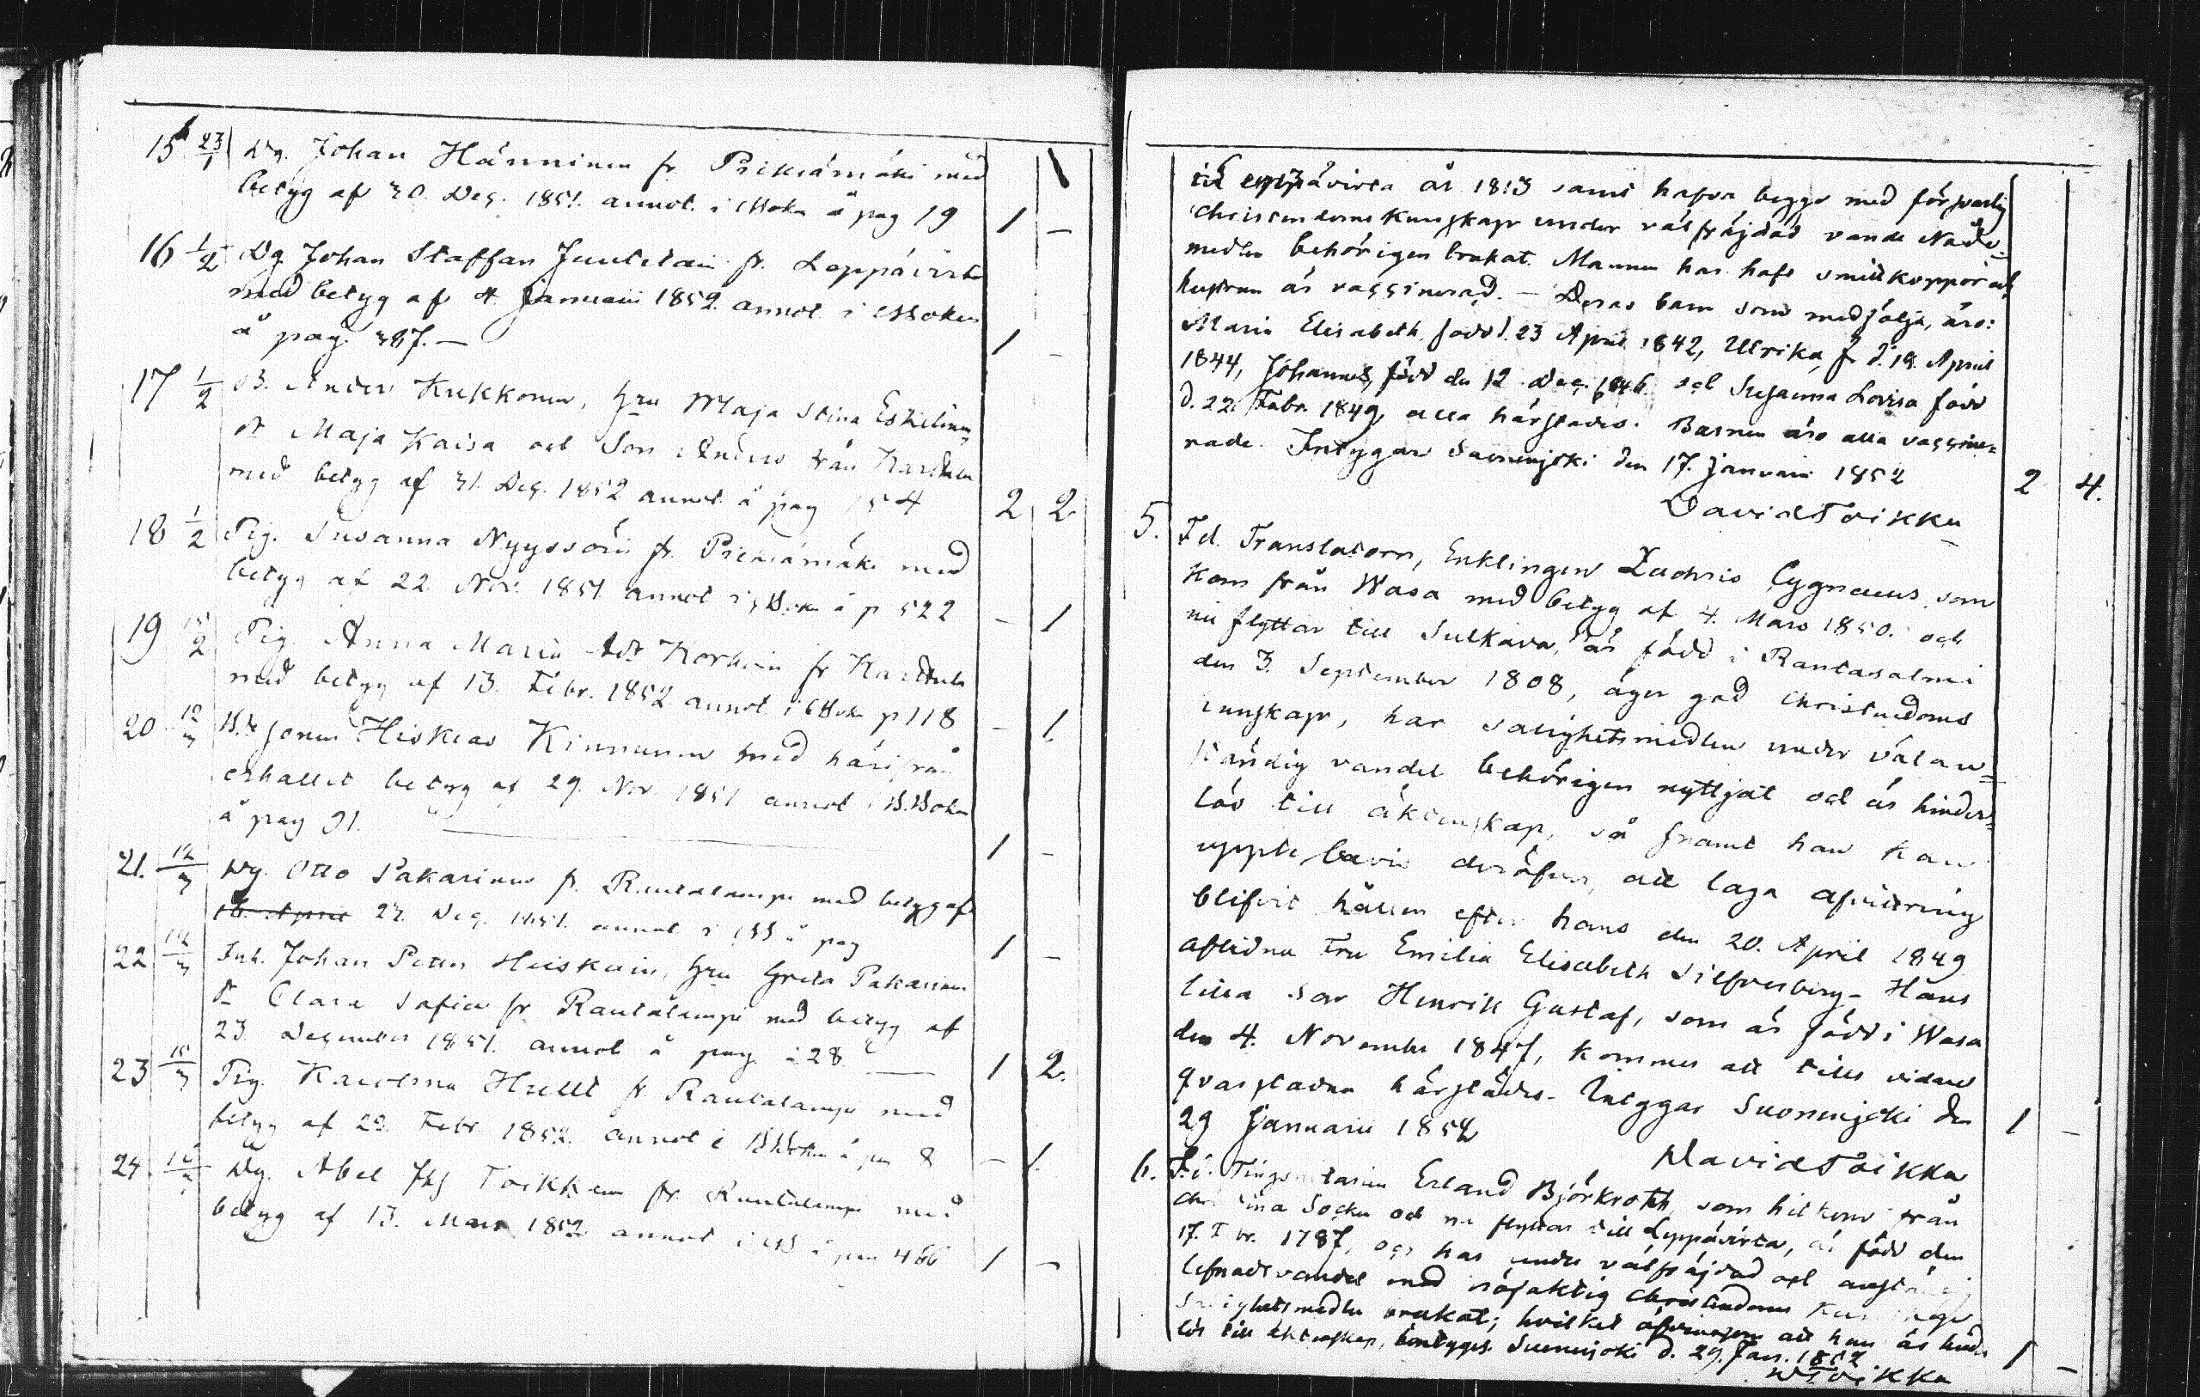 15 23/1 Dg. Johan Hänninen fr. Pieksämäki med
betyg af 30. Dec. 1851. annot. i Boken å pag 19 1 –
16 1/2 Dg Johan Staffan Juutilain fr. Leppävirta
med betyg af 4. Januarii 1852. annot i Boken
å pag. 387. – 1 –
17 1/2 B. Anders Kukkonen, hru Maja Stina Eskelinen,
dr Maja Kaisa och Son Anders från Karttula
med betyg af 31. Dec. 1852 annot. å pag 154 2 2
18 1/2 Pig. Susanna Nyyssöin fr. Pieksämäki med
betyg af 22. Nov. 1851 annot i Boken å p 522 – 1
19 15/2 Pig. Anna Maria Korhoin fr Karttula
med betyg af 13. Febr. 1852 annot. i Boken p 118 – 1.
20 12/3 Jonas Hiskias Kinnunen med härifrån
erhallet betyg af 29. Nov 1851 annot i B.Boken
å pag 91. 1 –
21. 12/3 Dg. Otto Pakarinen fr. Rautalampi med betyg af
27. Dec. 1851. annot. i å pag 1 –
22 12/3 Inh. Johan Petter Heiskain, hru Greta Pakarinen
dr Clara Sofia fr Rautalampi med betyg af
23. December 1851. annot å pag 128. 1 2.
23 Pig. Karolina Hullt fr Rautalampi med
betyg af 22. Febr. 1852. annot i Boken å pag 8 – 1.
24. Dg. Abel Toikkain fr. Rautalampi med
betyg af 13. Mars 1852 annot i å pag 466 1 –
till Leppävirta år 1813 samt hafva begge med försvarlig
Christendoms Kunskap under välfräjdad vandel Nåde-
medlen behörigen brukat. Mannen har haft smittkoppor och
hustrun är vaccinerad. – Deras barn som medfölja, äro:
Maria Elisabeth, född d. 23 April 1842, Ulrika, f. d. 19. April
1844, Johannes, född den 12. Dec. 1846. och Susanna Lovisa född
d. 22. Febr. 1849, alla härstädes. Barnen äro alla vaccine=
rade. Intygar Suonenjoki den 17. Januari 1852 2 4.
David Toikka
5. F.d. Translatorn, Enklingen Zachris Cygnaeus, som
kom från Wasa med betyg af 4. Mars 1850. och
nu flyttar till Sulkava, är född i Rantasalmi
den 3. September 1808, äger god Christendoms
kunskap, har salighetsmedlen under välan=
ständig vandel behörigen nyttjat och är hinders=
lös till äktenskap, så framt han kan
uppte bevis deröfver, att laga afvittring
blifvit hållen efter hans den 20. April 1849
aflidna Fru Emilia Elisabeth Silfverberg – Hans
lilla son Henrik Gustaf, som är född i Wasa
den 4. November 1847, kommer att tills vidare
qvarstadna härstädes. Intygar Suonenjoki den
29 Januarii 1852 1 –
David Toikka
6. F.d. Erland Björkroth, som hit kom från
Socken och nu flyttar till Leppävirta, är född den
17. 1787, och har under välfräjdad och anständig
lefnadsvandel med nöjaktig Christendoms
salighetsmedlen brukat; hvilket äfvensom att han är hinders
lös till äktenskap, intygas. Suonenjoki d. 29. Jan. 1852 1 –
D Toikka